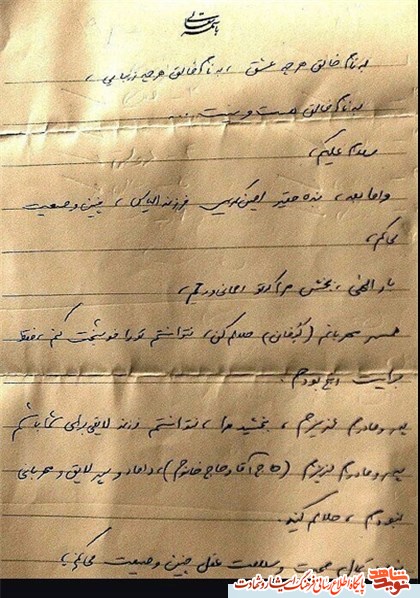 باسمه تعالی
به نام خالق هر چه عشق، به نام خالق هر چه زیبایی،
به نام خالق هست و نیست ...
سلام علیکم،
و اما بعد، بنده حقیر امین کریمی فرزند الیاس، چنین وصیت
می‌کنم.
بار الهی، ببخش مرا که
همسر مهربانم حلالم کن، نتوانستم تو را خوشبخت کنم، فقط
برایت رنج بودم.
پدر و مادرم عزیزم، ببخشید مرا، نتوانستم فرزند لایقی برای شما باشم
پدر و مادرم عزیزم (حاج آقا و حاج خانوم)، داماد و پسر لایق و مهربانی
نبودم، حلالم کنید.
در کمال صحت و سلامت عقل چنین وصیت می‌کنم:
نوید شاهد
پایگاه اطلاع رسانی فرهنگ ایثار و شهادت